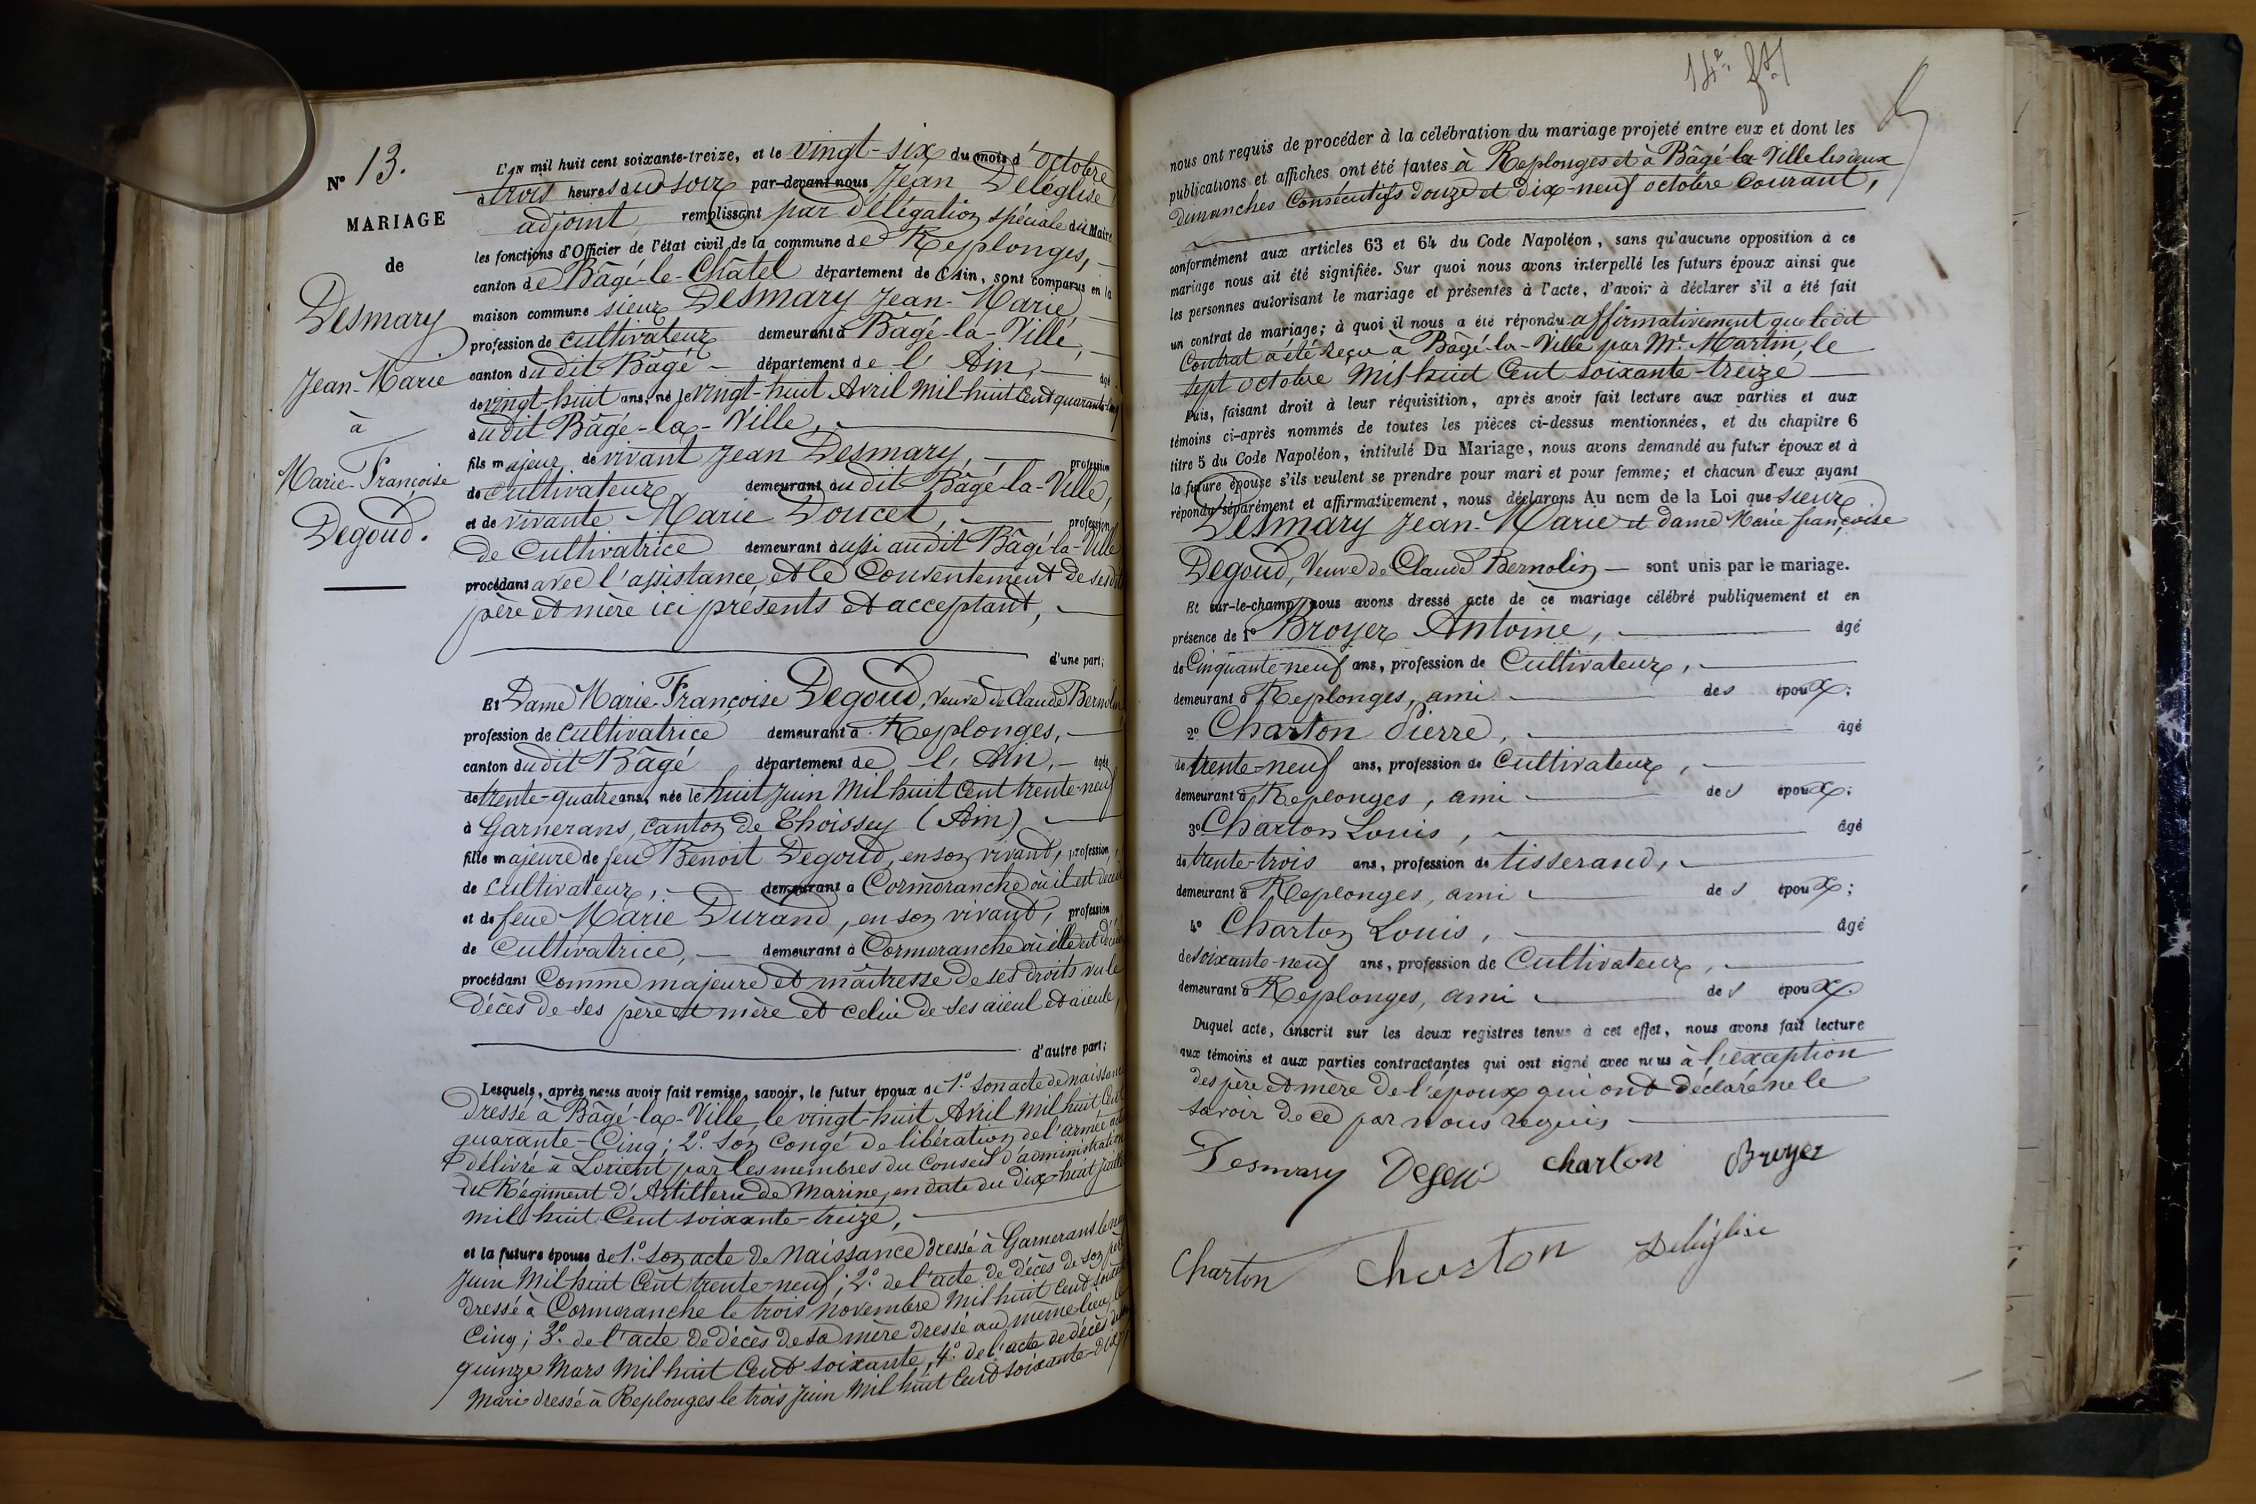 N° 13.
MARIAGE
de
Desmary
Jean-Marie
à
Marie-Françoise
Degoud.
L'AN mil huit cent soixante-treize, et le vingt-six du mois d'octobre
à trois heures du soir par-devant nous Jean Deléglise
adjoint, remplissant par délégation spéciale du Maire
les fonctions d'Officier de l'état civil de la commune de Replonges,
canton de Bâgé-le-Châtel département de l'Ain, sont comparus en la
maison commune sieur Desmary Jean-Marie,
profession de cultivateur demeurant à Bâgé-la-Ville,
canton dudit Bâgé département de l'Ain, âgé
de vingt-huit ans, né le vingt-huit Avril mil huit cent quarante-cinq
audit Bâgé-la-Ville,
fils majeur de vivant Jean Desmary, profession
de cultivateur demeurant audit Bâgé-la-Ville,
et de vivante Marie Doucet, profession
de Cultivatrice demeurant aussi audit Bâgé-la-Ville
procédant avec l'assistance et le Consentement de sesdits
père et mère ici présents et acceptant,
d'une part;
Et Dame Marie-Françoise Degoud, veuve de Claude Bernolin
profession de cultivatrice demeurant à Replonges,
canton dudit Bâgé département de l'Ain, âgée
de trente-quatre ans, née le huit Juin Mil huit Cent trente-neuf
à Garnerans, canton de Thoissey (Ain)
fille majeure de feu Benoit Degoud, en son vivant, profession
de cultivateur, demeurant à Cormoranche où il est décédé
et de feue Marie Durand, en son vivant, profession
de Cultivatrice, demeurant à Cormoranche où elle est décédée
procédant Comme majeure et maîtresse de ses droits vu le
décès de ses père et mère et celui de ses aïeul et aïeule,
d'autre part;
Lesquels, après nous avoir fait remise, savoir, le futur époux de 1° son acte de naissance
dressé à Bâgé-la-Ville, le vingt-huit Avril Mil huit Cent
quarante-Cinq; 2° son Congé de libération de l'armée
délivré à Lorient par les membres du Conseil d'administration
du Régiment d'Artillerie de Marine, en date du dix-huit Juillet
mil huit Cent soixante-treize,
et la future épouse de 1° son acte de Naissance dressé à Garnerans le neuf
Juin Mil huit Cent trente-neuf; 2° de l'acte de décès de son père
dressé à Cormoranche le trois novembre Mil huit Cent soixante
Cinq; 3° de l'acte de décès de sa mère dressé au même lieu, le
quinze Mars Mil huit Cent soixante, 4° de l'acte de décès de son
Mari dressé à Replonges le trois Juin Mil huit Cent soixante-dix
14e
nous ont requis de procéder à la célébration du mariage projeté entre eux et dont les
publications et affiches ont été faites à Replonges et à Bâgé-la-Ville les deux
dimanches Consécutifs douze et dix-neuf octobre Courant,
conformément aux articles 63 et 64 du Code Napoléon, sans qu'aucune opposition à ce
mariage nous ait été signifiée. Sur quoi nous avons interpellé les futurs époux ainsi que
les personnes autorisant le mariage et présentes à l'acte, d'avoir à déclarer s'il a été fait
un contrat de mariage; à quoi il nous a été répondu affirmativement que ledit
Contrat a été reçu à Bâgé-la-Ville par Mr Martin, le
sept octobre Mil huit Cent soixante-treize
Puis, faisant droit à leur réquisition, après avoir fait lecture aux parties et aux
témoins ci-après nommés de toutes les pièces ci-dessus mentionnées, et du chapitre 6
titre 5 du Code Napoléon, intitulé Du Mariage, nous avons demandé au futur époux et à
la future épouse s'ils veulent se prendre pour mari et pour femme; et chacun d'eux ayant
répondu séparément et affirmativement, nous déclarons Au nom de la Loi que sieur
Desmary Jean-Marie et dame Marie françoise
Degoud, Veuve de Claude Bernolin sont unis par le mariage.
Et sur-le-champ nous avons dressé acte de ce mariage célébré publiquement et en
présence de 1° Broyer Antoine, âgé
de Cinquante-neuf ans, profession de Cultivateur,
demeurant à Replonges, ami des époux;
2° Charton Pierre, âgé
de trente-neuf ans, profession de Cultivateur,
demeurant à Replonges, ami des époux;
3° Charton Louis, âgé
de trente-trois ans, profession de tisserand,
demeurant à Replonges, ami des époux;
4° Charton Louis, âgé
de soixante-neuf ans, profession de Cultivateur,
demeurant à Replonges, ami des époux.
Duquel acte, inscrit sur les deux registres tenus à cet effet, nous avons fait lecture
aux témoins et aux parties contractantes qui ont signé avec nous à l'exception
des père et mère de l'époux qui ont déclaré ne le
savoir de ce par nous requis
Desmary Degou Charton Broyer
Charton Charton Deléglise